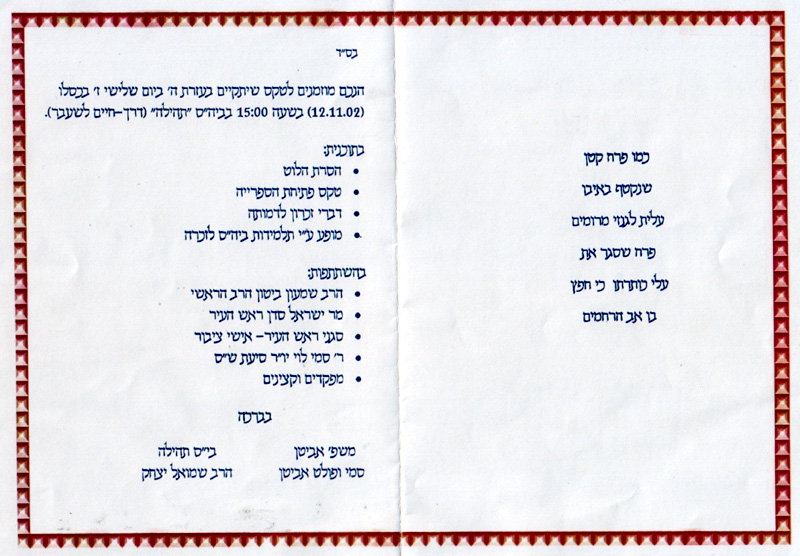 כמו פרח קטן
שנקטף באיבו
עלית לגנזי מרומים
פרח שסגר את
עלי כותרתו כי חפץ
בו אב הרחמים
בס״ד
הנכם מוזמנים לטקס שיתקיים בעזרת ה׳ ביום שלישי ז׳ בכסלו
(12.11.02) בשעה 15:00 בביה״ס ״תהילה״ (דרך-חיים לשעבר).
בתוכנית:
• הסרת הלוט
• טקס פתיחת הספרייה
• דברי זכרון לדמותה
• מופע ע״י תלמידות ביה״ס לזכרה
בהשתתפות:
• הרב שמעון ביטון הרב הראשי
• מר ישראל סדן ראש העיר
• סגני ראש העיר– אישי ציבור
• ר׳ סמי לוי יו״ר סיעת ש״ס
• מפקדים וקצינים
בברכה
משפ׳ אביטן
סמי ופולט אביטן
בי״ס תהילה
הרב שמואל יצחק